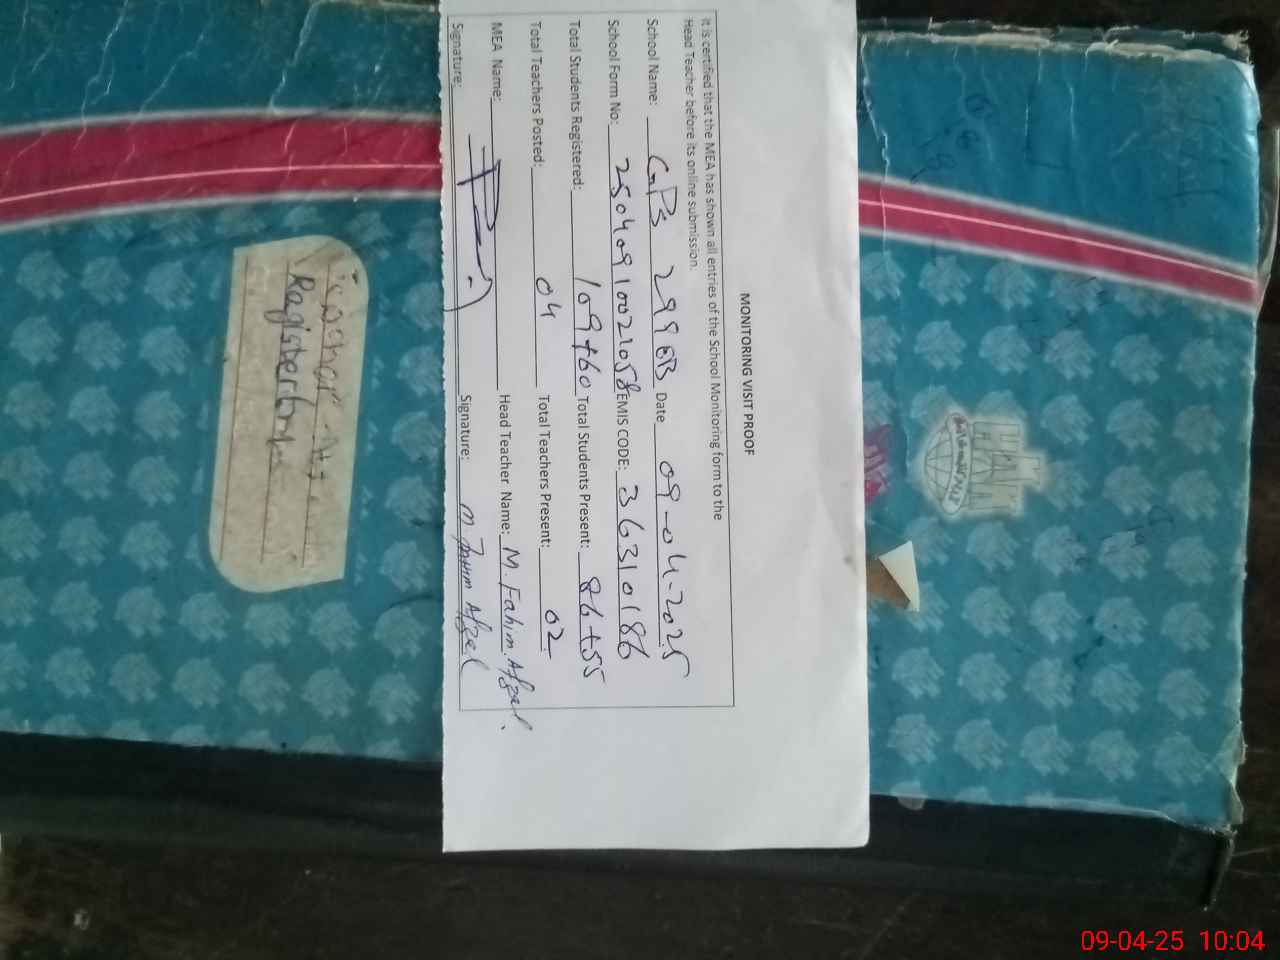 MONITORING VISIT PROOF
It is certified that the MEA has shown all entries of the School Monitoring form to the
Head Teacher before its online submission.
School Name: GPS 299 EB Date 09-04-2025
School Form No: 2504091002058 EMIS CODE: 36310186
Total Students Registered: 109+60 Total Students Present: 86+55
Total Teachers Posted: 04 Total Teachers Present: 02
MEA Name: Head Teacher Name: M. Fahim Afzal.
Signature: Signature: M Fahim Afzal
09-04-25 10:04